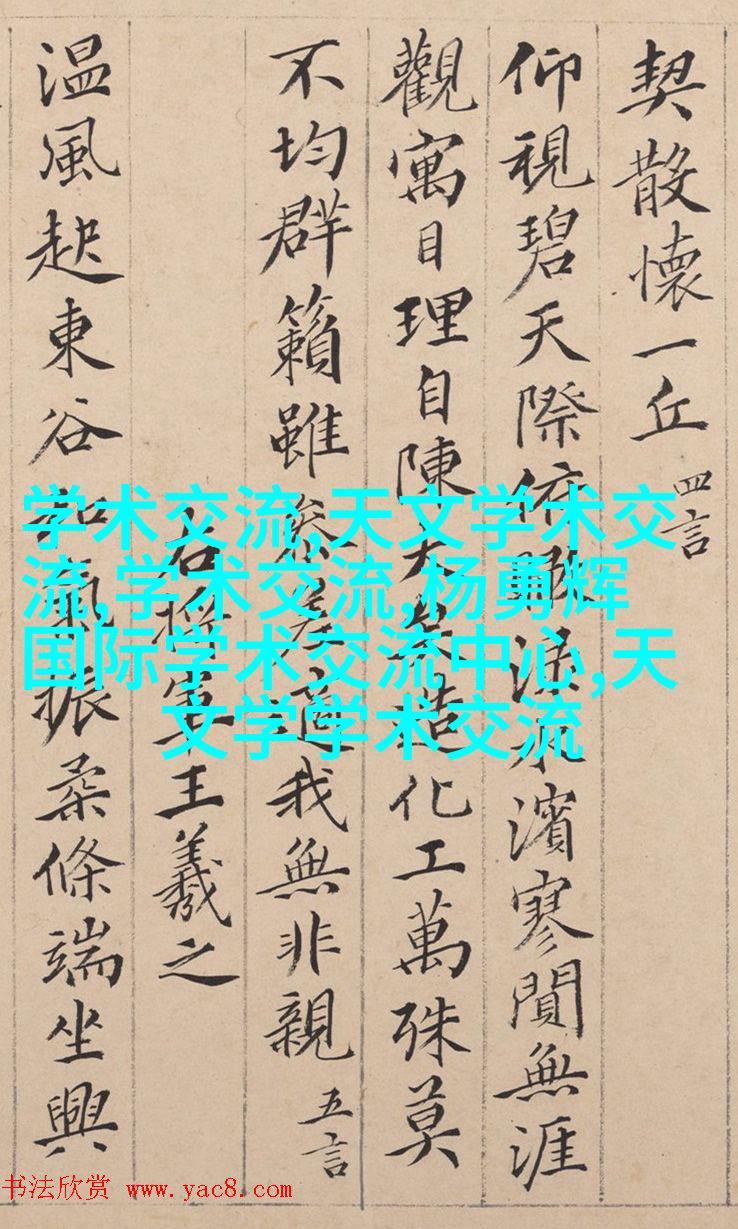 契散懷一丘 四言
仰視碧天際俯瞰淥水濱寥閴無涯
觀寓目理自陳大矣造化工萬殊莫
不均群籟雖參差適我無非親 五言
右將軍王羲之
温風起東谷和氣振柔條端坐興
学术交流,天文学术交
流,学术交流,杨勇辉
国际学术交流中心,天
文学学术交流
书法欣赏 www.yac8.com